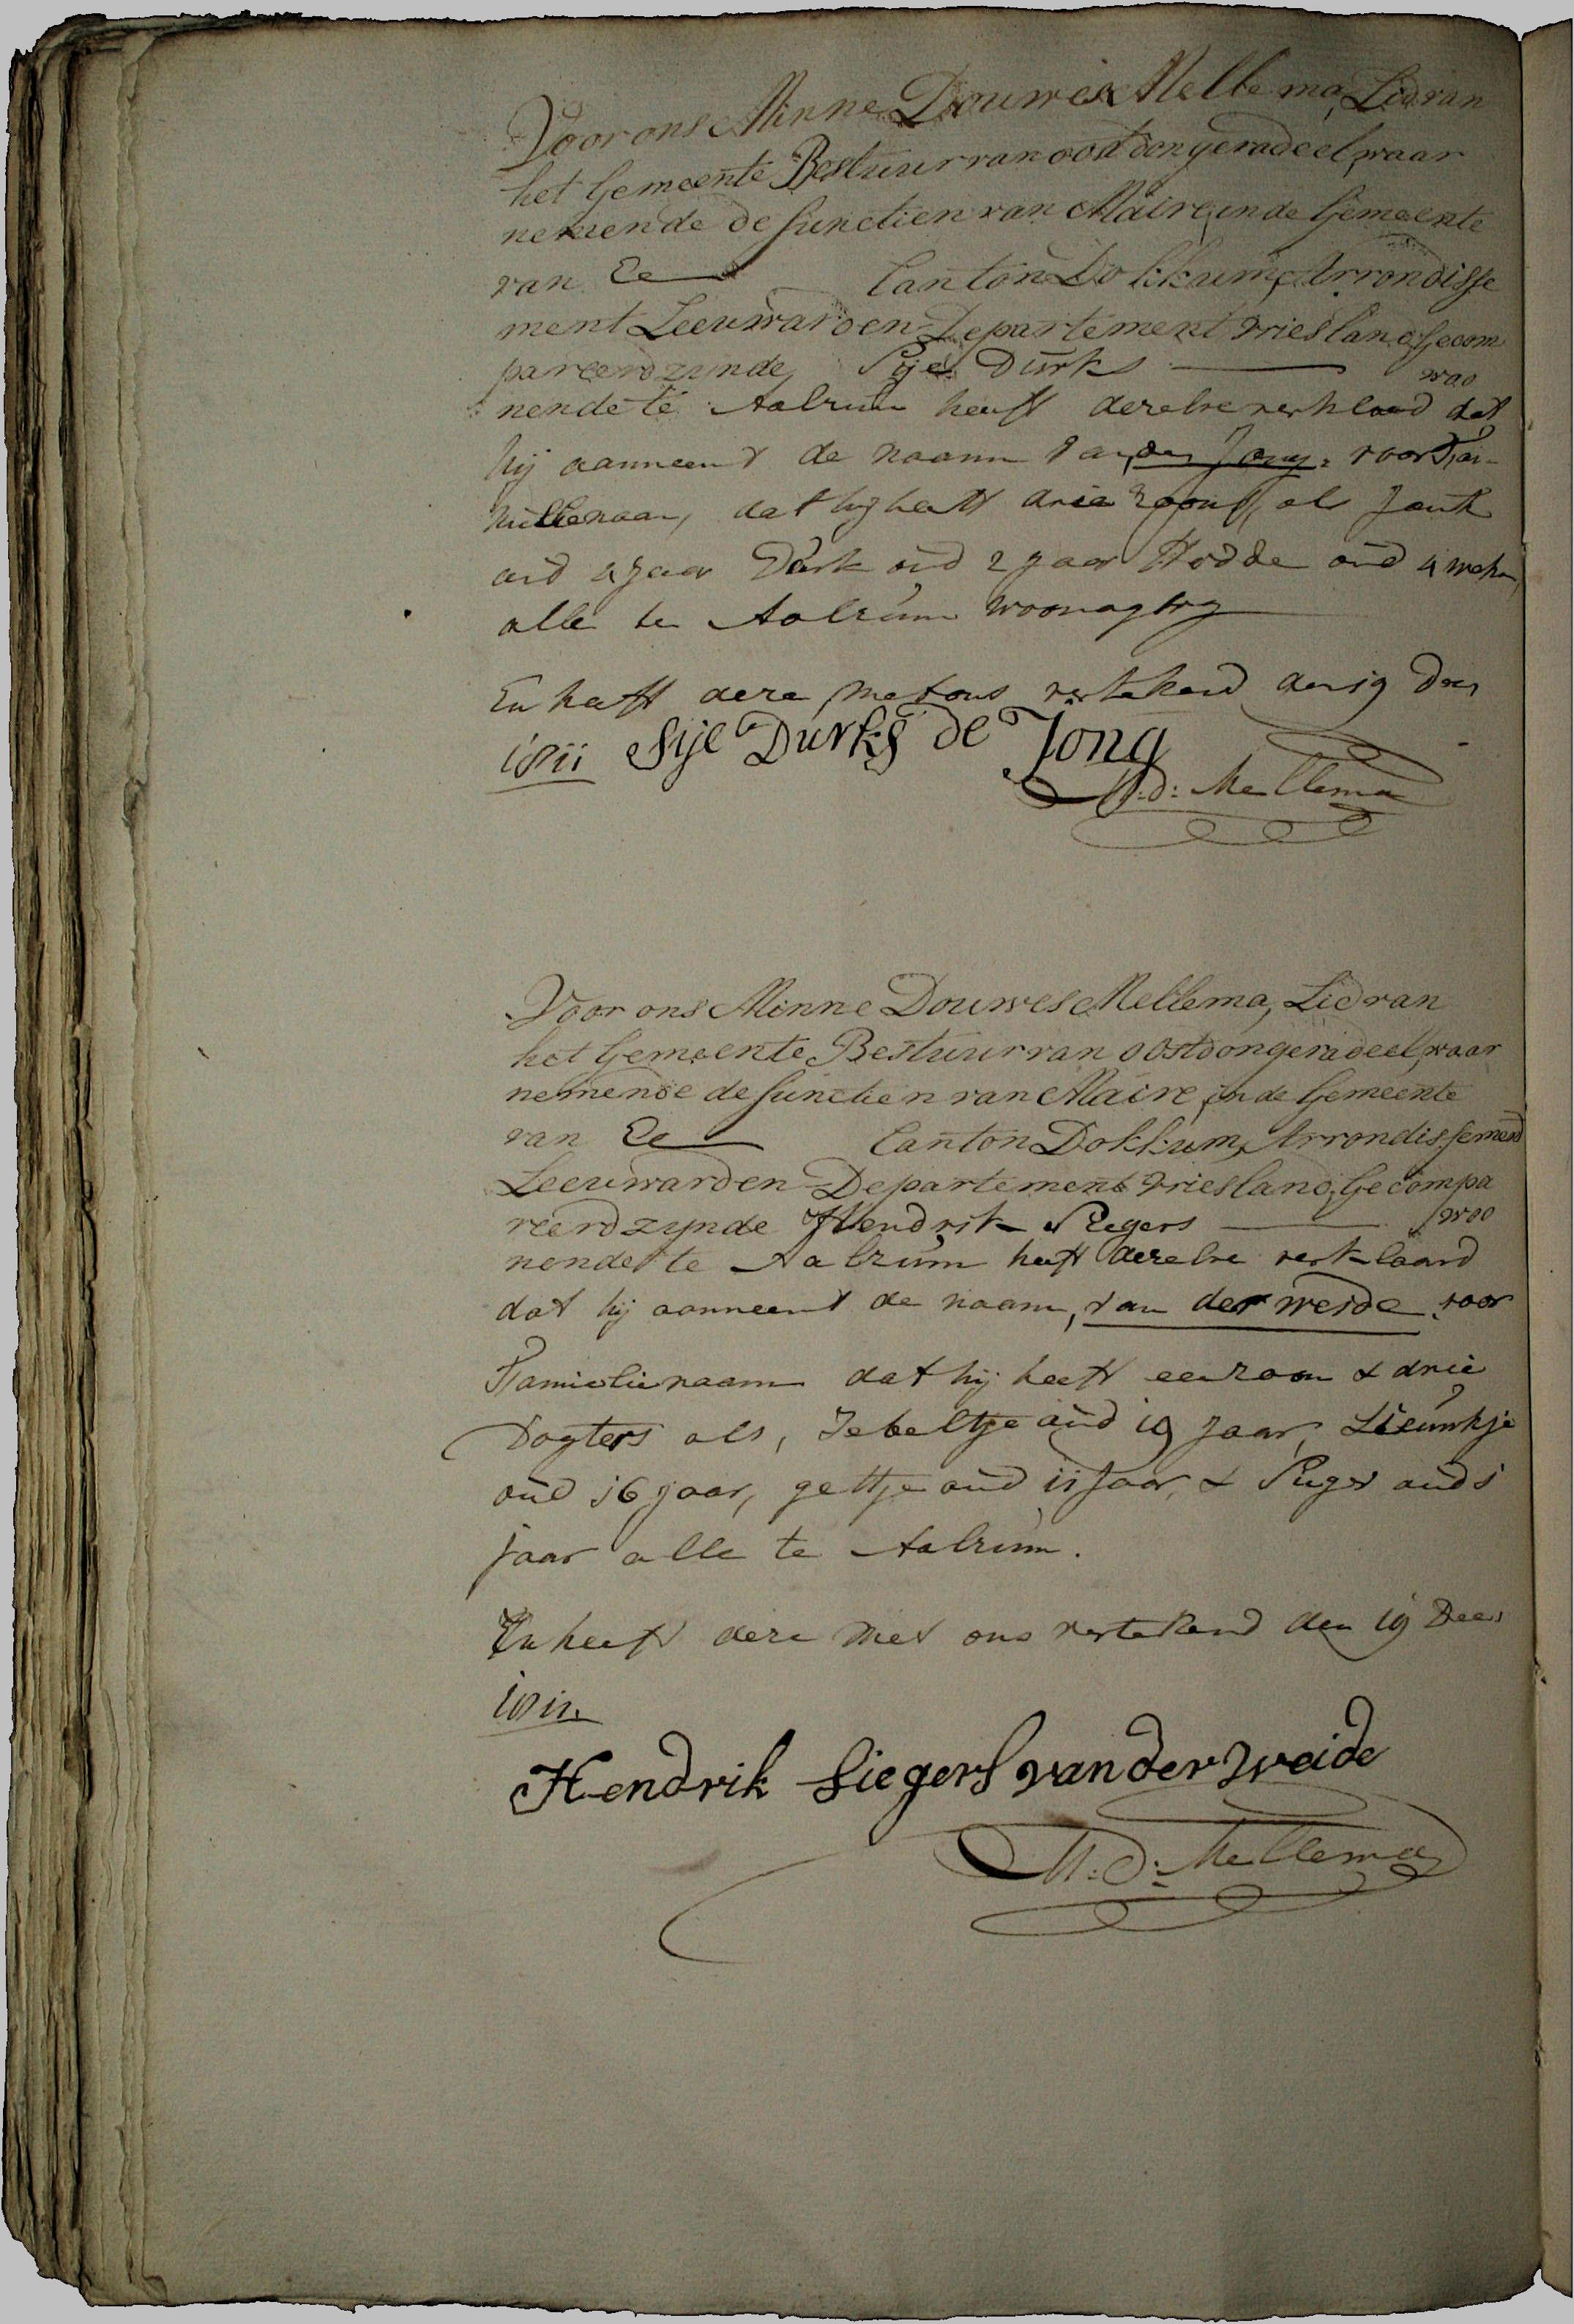 Voor ons Minne Douwes Mellema, Lid van
het Gemeente Bestuur van oostdongeradeel, waar
nemende de functien van Maire, in de Gemeente
van Ee Canton Dokkum, Arrondisse
ment Leeuwarden Departement Vriesland, Gecom
pareerd zynde, Sije Durks woo
nende te Aalzum heeft dezelve verklaard dat
hij aanneemt de naam van de Jong voor Fa
millienaam, dat hij heeft drie zoons, als Jouk
oud 4 Jaar Durk oud 2 Jaar Hodde oud 4 weken
alle te Aalzum woonagtig
En heeft deze met ons vertekend den 19 Dec
1811 Sije Durks de Jong
M:d: Mellema
Voor ons Minne Douwes Mellema, Lid van
het Gemeente Bestuur van Oostdongeradeel, waar
nemende de functien van Maire, in de Gemeente
van Ee Canton Dokkum, Arrondissement
Leeuwarden Departement Vriesland, Gecompa
reerd zynde Hendrik Siegers woo
nende te Aalzum heeft dezelve verklaard
dat hij aanneemt de naam, van der weide voor
Familienaam dat hij heeft een zoon & drie
Dogters als, Jebeltje oud 19 Jaar, Lieuwkje
oud 16 jaar, geltje oud 11 Jaar, & Sieger oud 5
jaar alle te Aalzum.
En heeft deze met ons vertekend den 19 Decr
1811.
Hendrik Siegers van der weide
M:d: Mellema